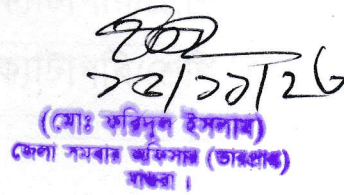 (মোঃ ফরিদুল ইসলাম)
জেলা সমবায় অফিসার (ভারপ্রাপ্ত)
মাগুরা ।